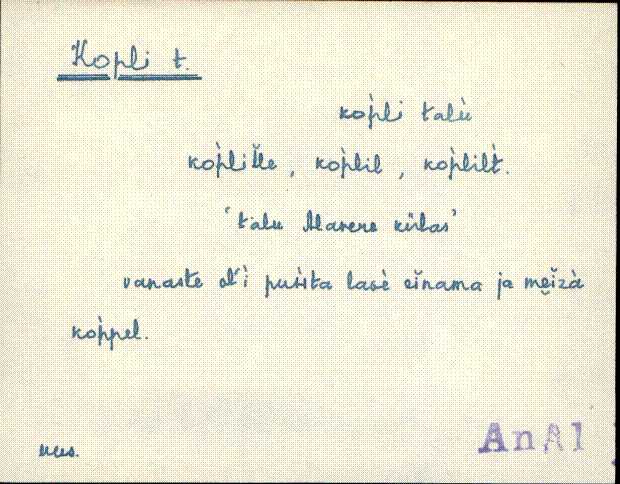 Kopli t.
kop̀li talù
kop̀lil̆le, kop̀lil, kop̀lilt̀.
'talu Alavere külas'
vanaste ol'ì puśita lasè einama ja mei̯zà
kop̀pel.
AnAl